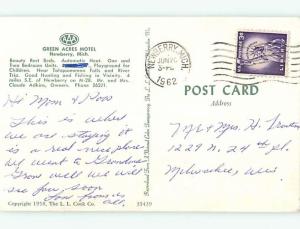 AAA
GREEN ACRES MOTEL
Newberry, Mich.
Beauty Rest Beds. Automatic Heat. One and
Two Bedroom Units. Playground for
Children. Near Tahquamenon Falls and River
Trip. Good Hunting and Fishing in Vicinity. 4
miles S.E. of Newberry on M-28. Mr. and Mrs.
Claude Adkins, Owners. Phone 26252
Hi Mom &
This is where
we are staying it
is a real nice place
we went to
will see
you soon
Love from us
all.
Copyright 1958, The L. L. Cook Co.
35439
NEWBERRY, MICH.
JUN
1962
3¢
LIBERTY
POST CARD
Address
Mr & Mrs H.
1229 N. 24th St.
Milwaukee, Wis.